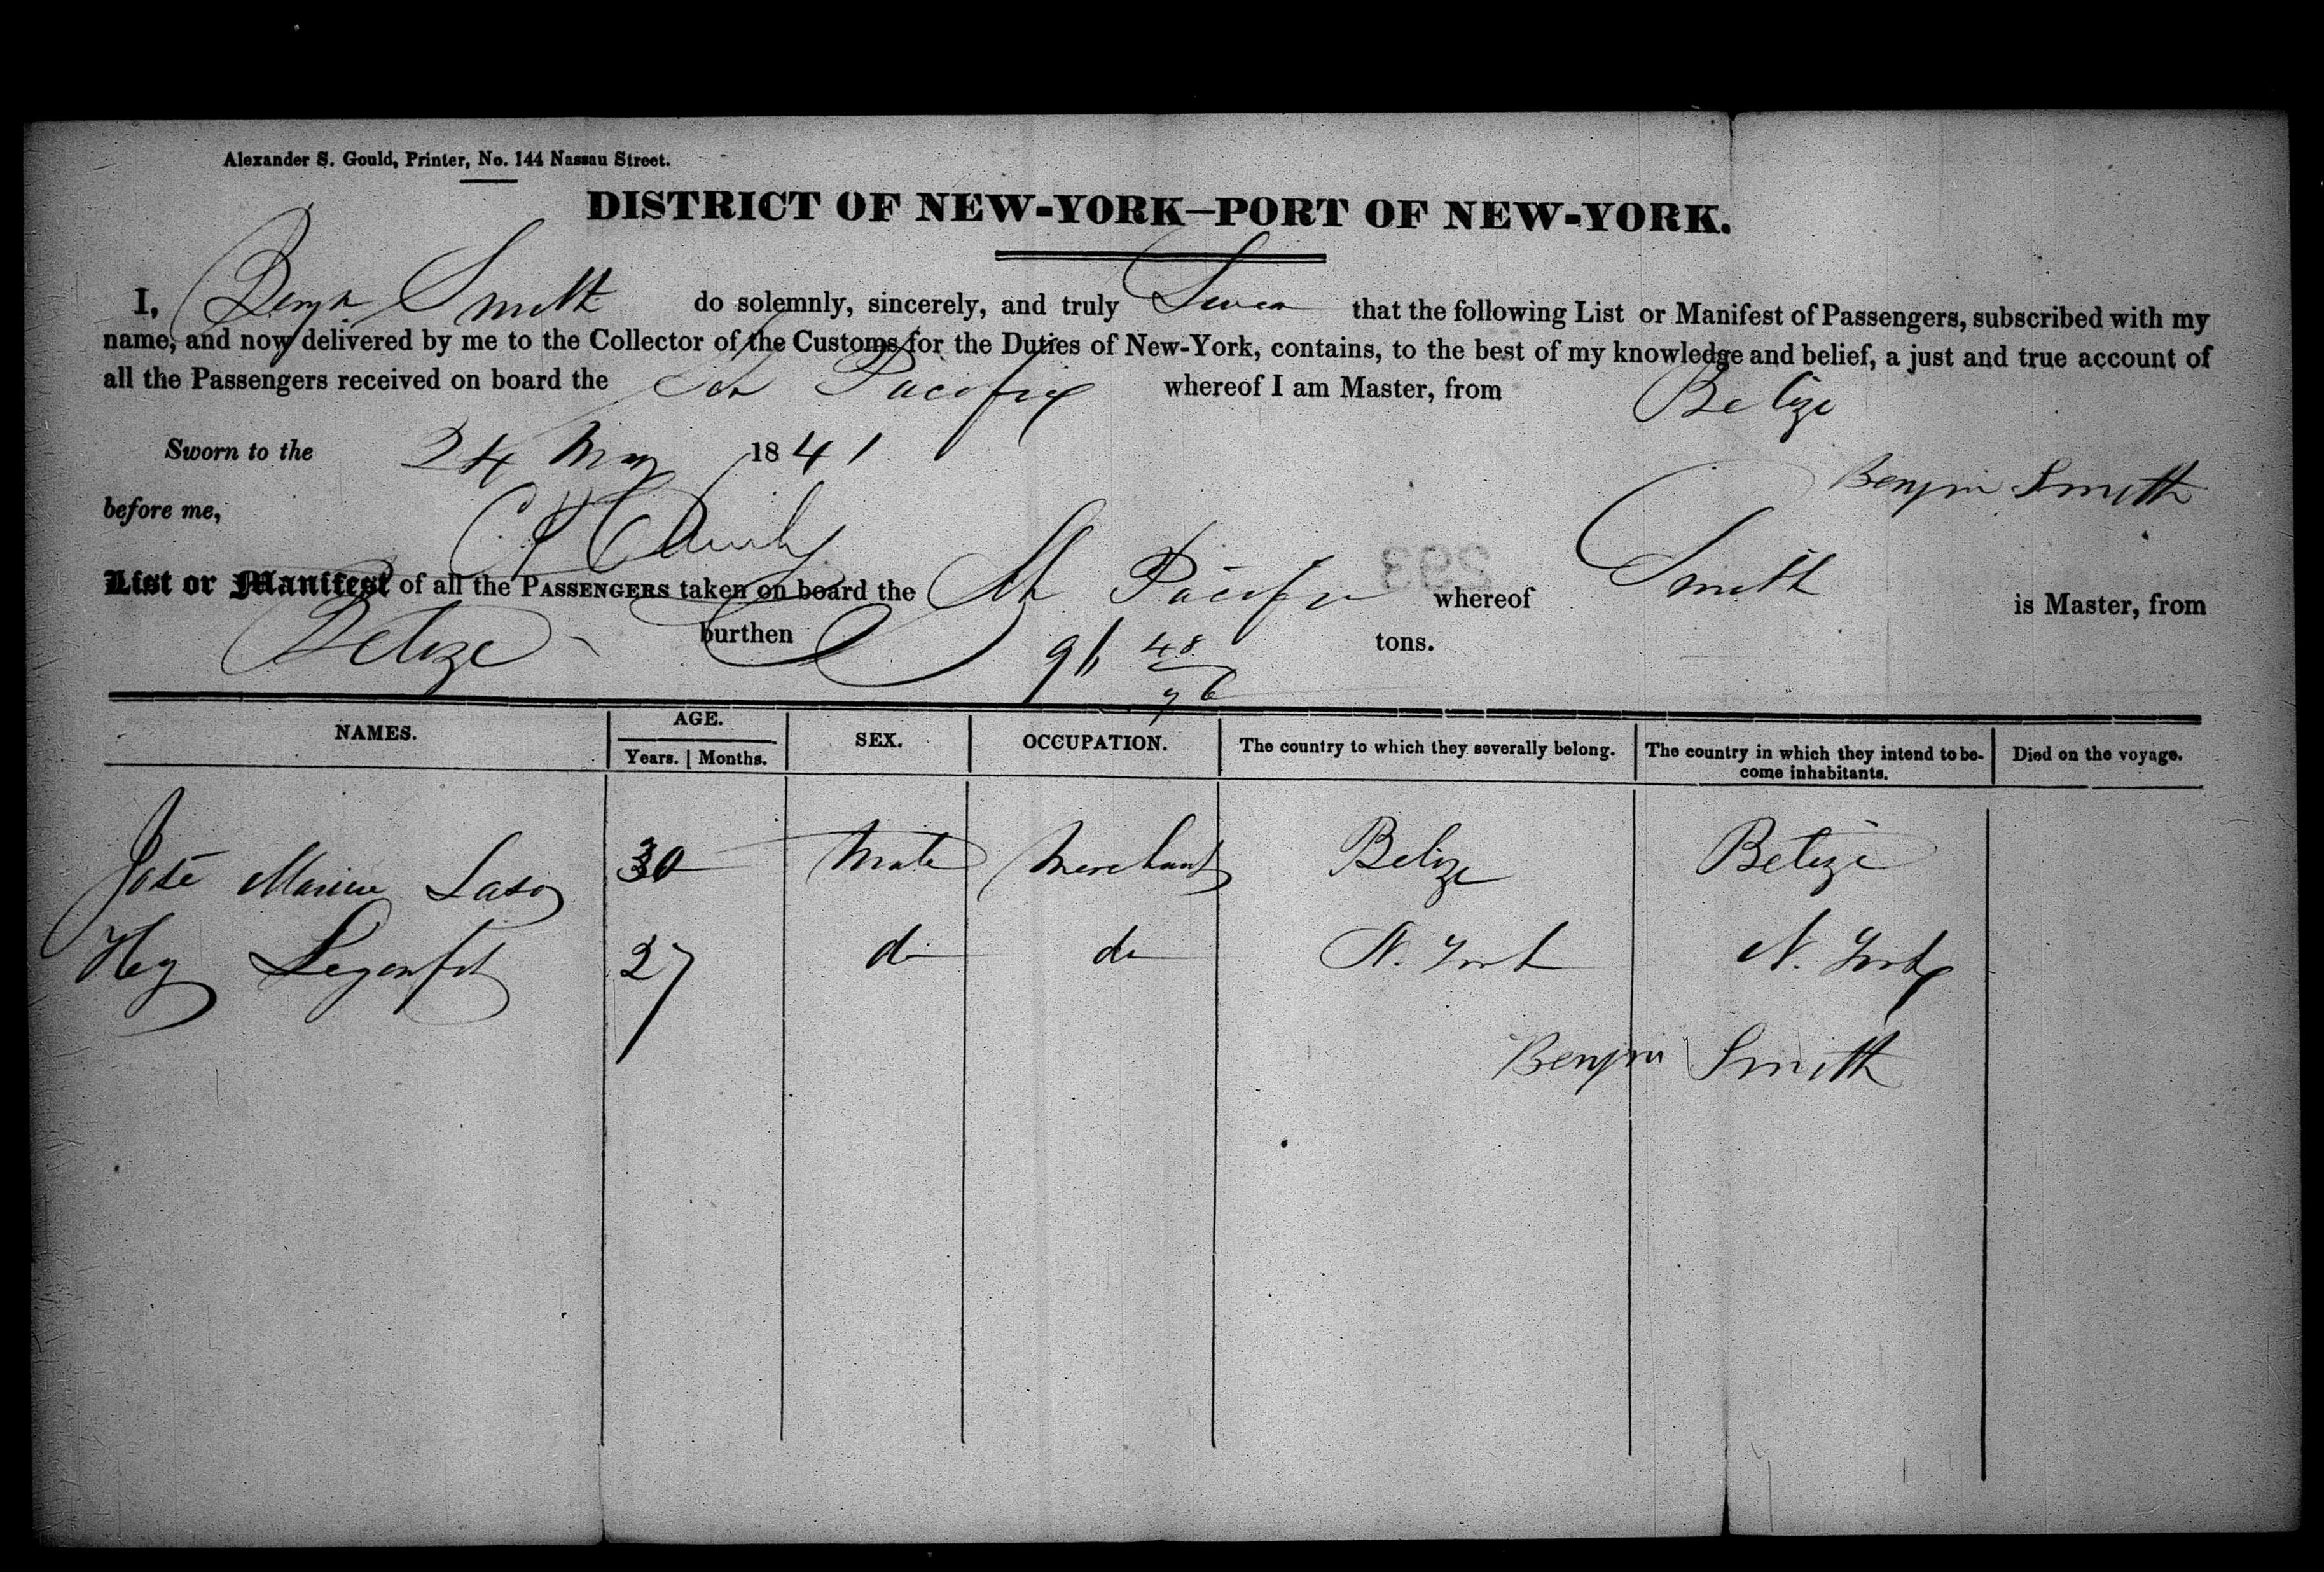 Alexander S. Gould, Printer, No. 144 Nassau Street.
DISTRICT OF NEW-YORK—PORT OF NEW-YORK.
I, Benjn Smith do solemnly, sincerely, and truly Swear that the following List or Manifest of Passengers, subscribed with my
name, and now delivered by me to the Collector of the Customs for the Duties of New-York, contains, to the best of my knowledge and belief, a just and true account of
all the Passengers received on board the Sch Pacific whereof I am Master, from Belize
Sworn to the 24 May 1841
Benjm Smith
before me,
List or Manifest of all the PASSENGERS taken on board the Sch Pacific whereof Smith is Master, from
Belize burthen 91 48/96 tons.
293
NAMES. AGE. Years. Months. SEX. OCCUPATION. The country to which they severally belong. The country in which they intend to be-come inhabitants. Died on the voyage.
José Laso 30 Male Merchant Belize Belize
27 do do N. York N. York
Benjm Smith